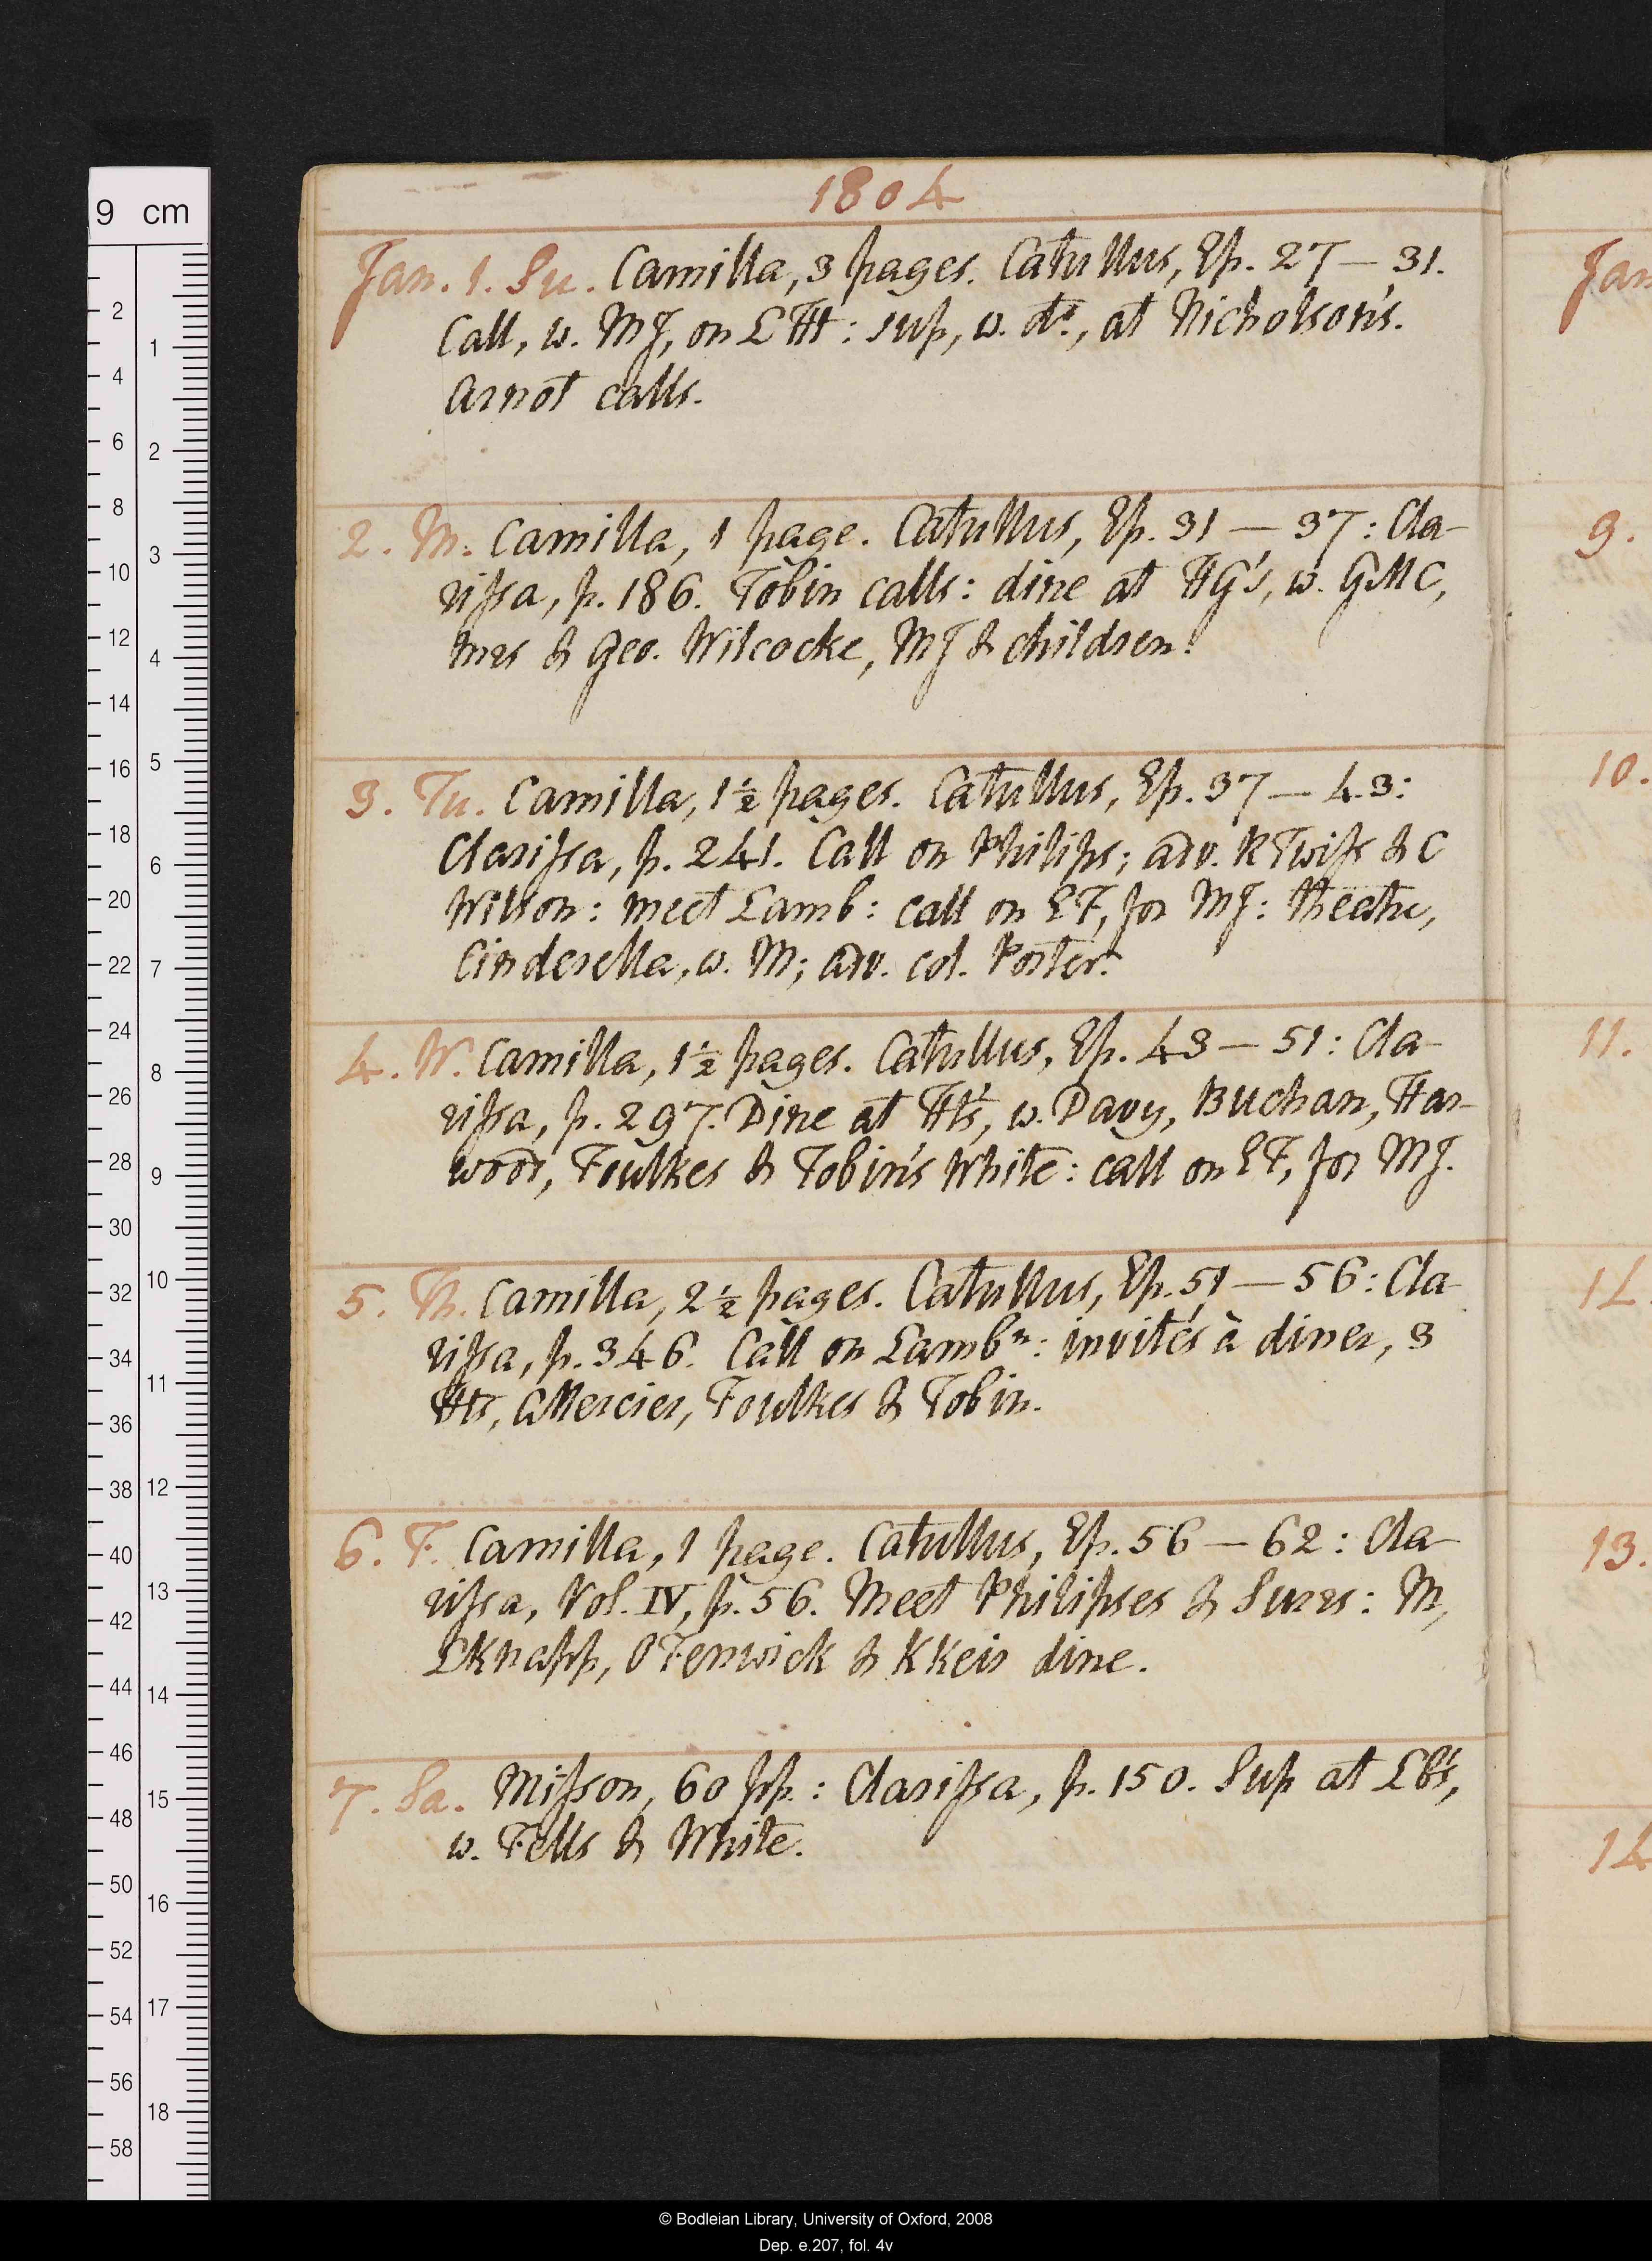 1804
Jan. 1. Su. Camilla, 3 pages. Catullus, Ep. 27 — 31.
Call, w. MJ, on LHt: sup, w. do., at Nicholson's.
Arnot calls.
2. M. Camilla, 1 page. Catullus, Ep. 31 — 37: Cla-
rissa, p. 186. Tobin calls: dine at HG's, w. GMC,
mrs & Geo. Wilcocke, MJ & children.
3. Tu. Camilla, 1½ pages. Catullus, Ep. 37 — 43:
Clarissa, p. 241. Call on Philips; adv. RTwiss & C
Wilson: meet Lamb: call on EF, for MJ: theatre,
Cinderella, w. M; adv. col. Porter.
4. W. Camilla, 1½ pages. Catullus, Ep. 43 — 51: Cla-
rissa, p. 297. Dine at Ht's, w. Davy, Buchan, Har-
wood, Foulkes & Tobin's White: call on EF, for MJ.
5. Th. Camilla, 2½ pages. Catullus, Ep. 51 — 56: Cla-
rissa, p. 346. Call on Lambn: invités à diner, 3
Hts, AMercier, Foulkes & Tobin.
6. F. Camilla, 1 page. Catullus, Ep. 56 — 62: Cla-
rissa, Vol. IV, p. 56. Meet Philipses & Surrs: M,
LKnapp, OFenwick & KKeir dine.
7. Sa. Misson, 60 pp.: Clarissa, p. 150. Sup at LB's,
w. Fells & White.
Jan
9.
10.
11.
12.
13.
14
9 cm
2
4
6
8
10
12
14
16
18
20
22
24
26
28
30
32
34
36
38
40
42
44
46
48
50
52
54
56
58
1
2
3
4
5
6
7
8
9
10
11
12
13
14
15
16
17
18
© Bodleian Library, University of Oxford, 2008
Dep. e.207, fol. 4v